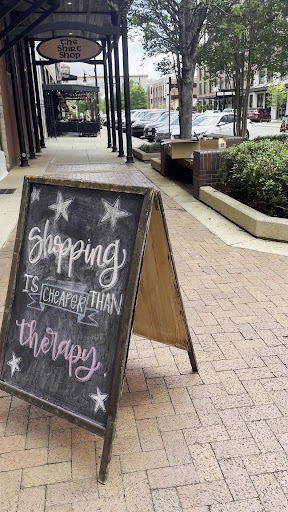 The
Shirt
Shop
Shopping
IS CHEAPER THAN
therapy.